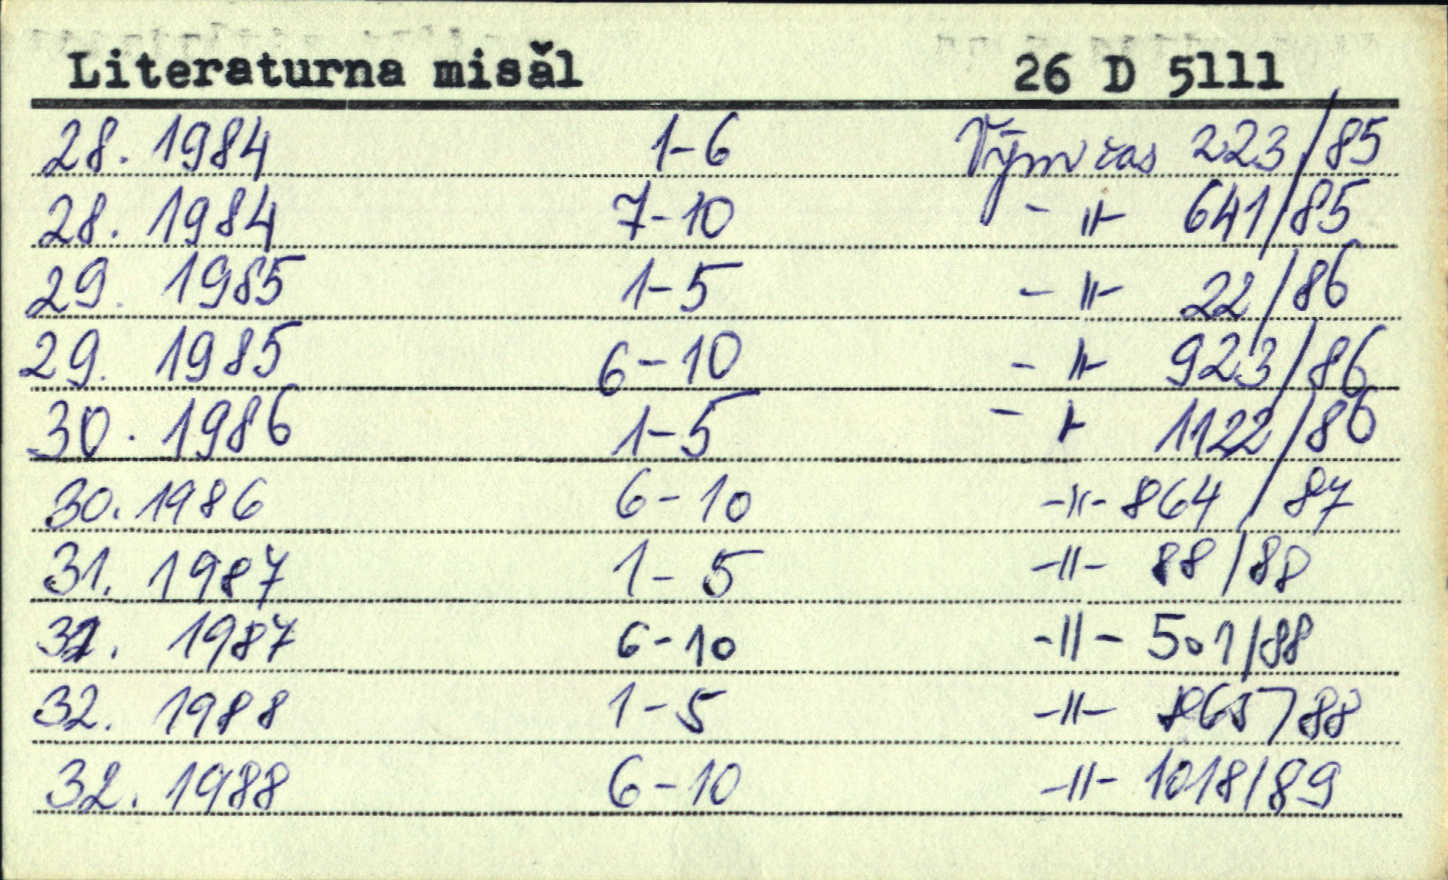 Literaturna misăl 26 D 5111
28. 1984 1-6 Vým čas 223/85
28. 1984 7-10 -"- 641/85
29. 1985 1-5 -"- 22/86
29. 1985 6-10 -"- 923/86
30. 1986 1-5 -"- 1122/86
30. 1986 6-10 -"- 864/87
31. 1987 1-5 -"- 88/88
31. 1987 6-10 -"- 501/88
32. 1988 1-5 -"- 865/88
32. 1988 6-10 -"- 1018/89